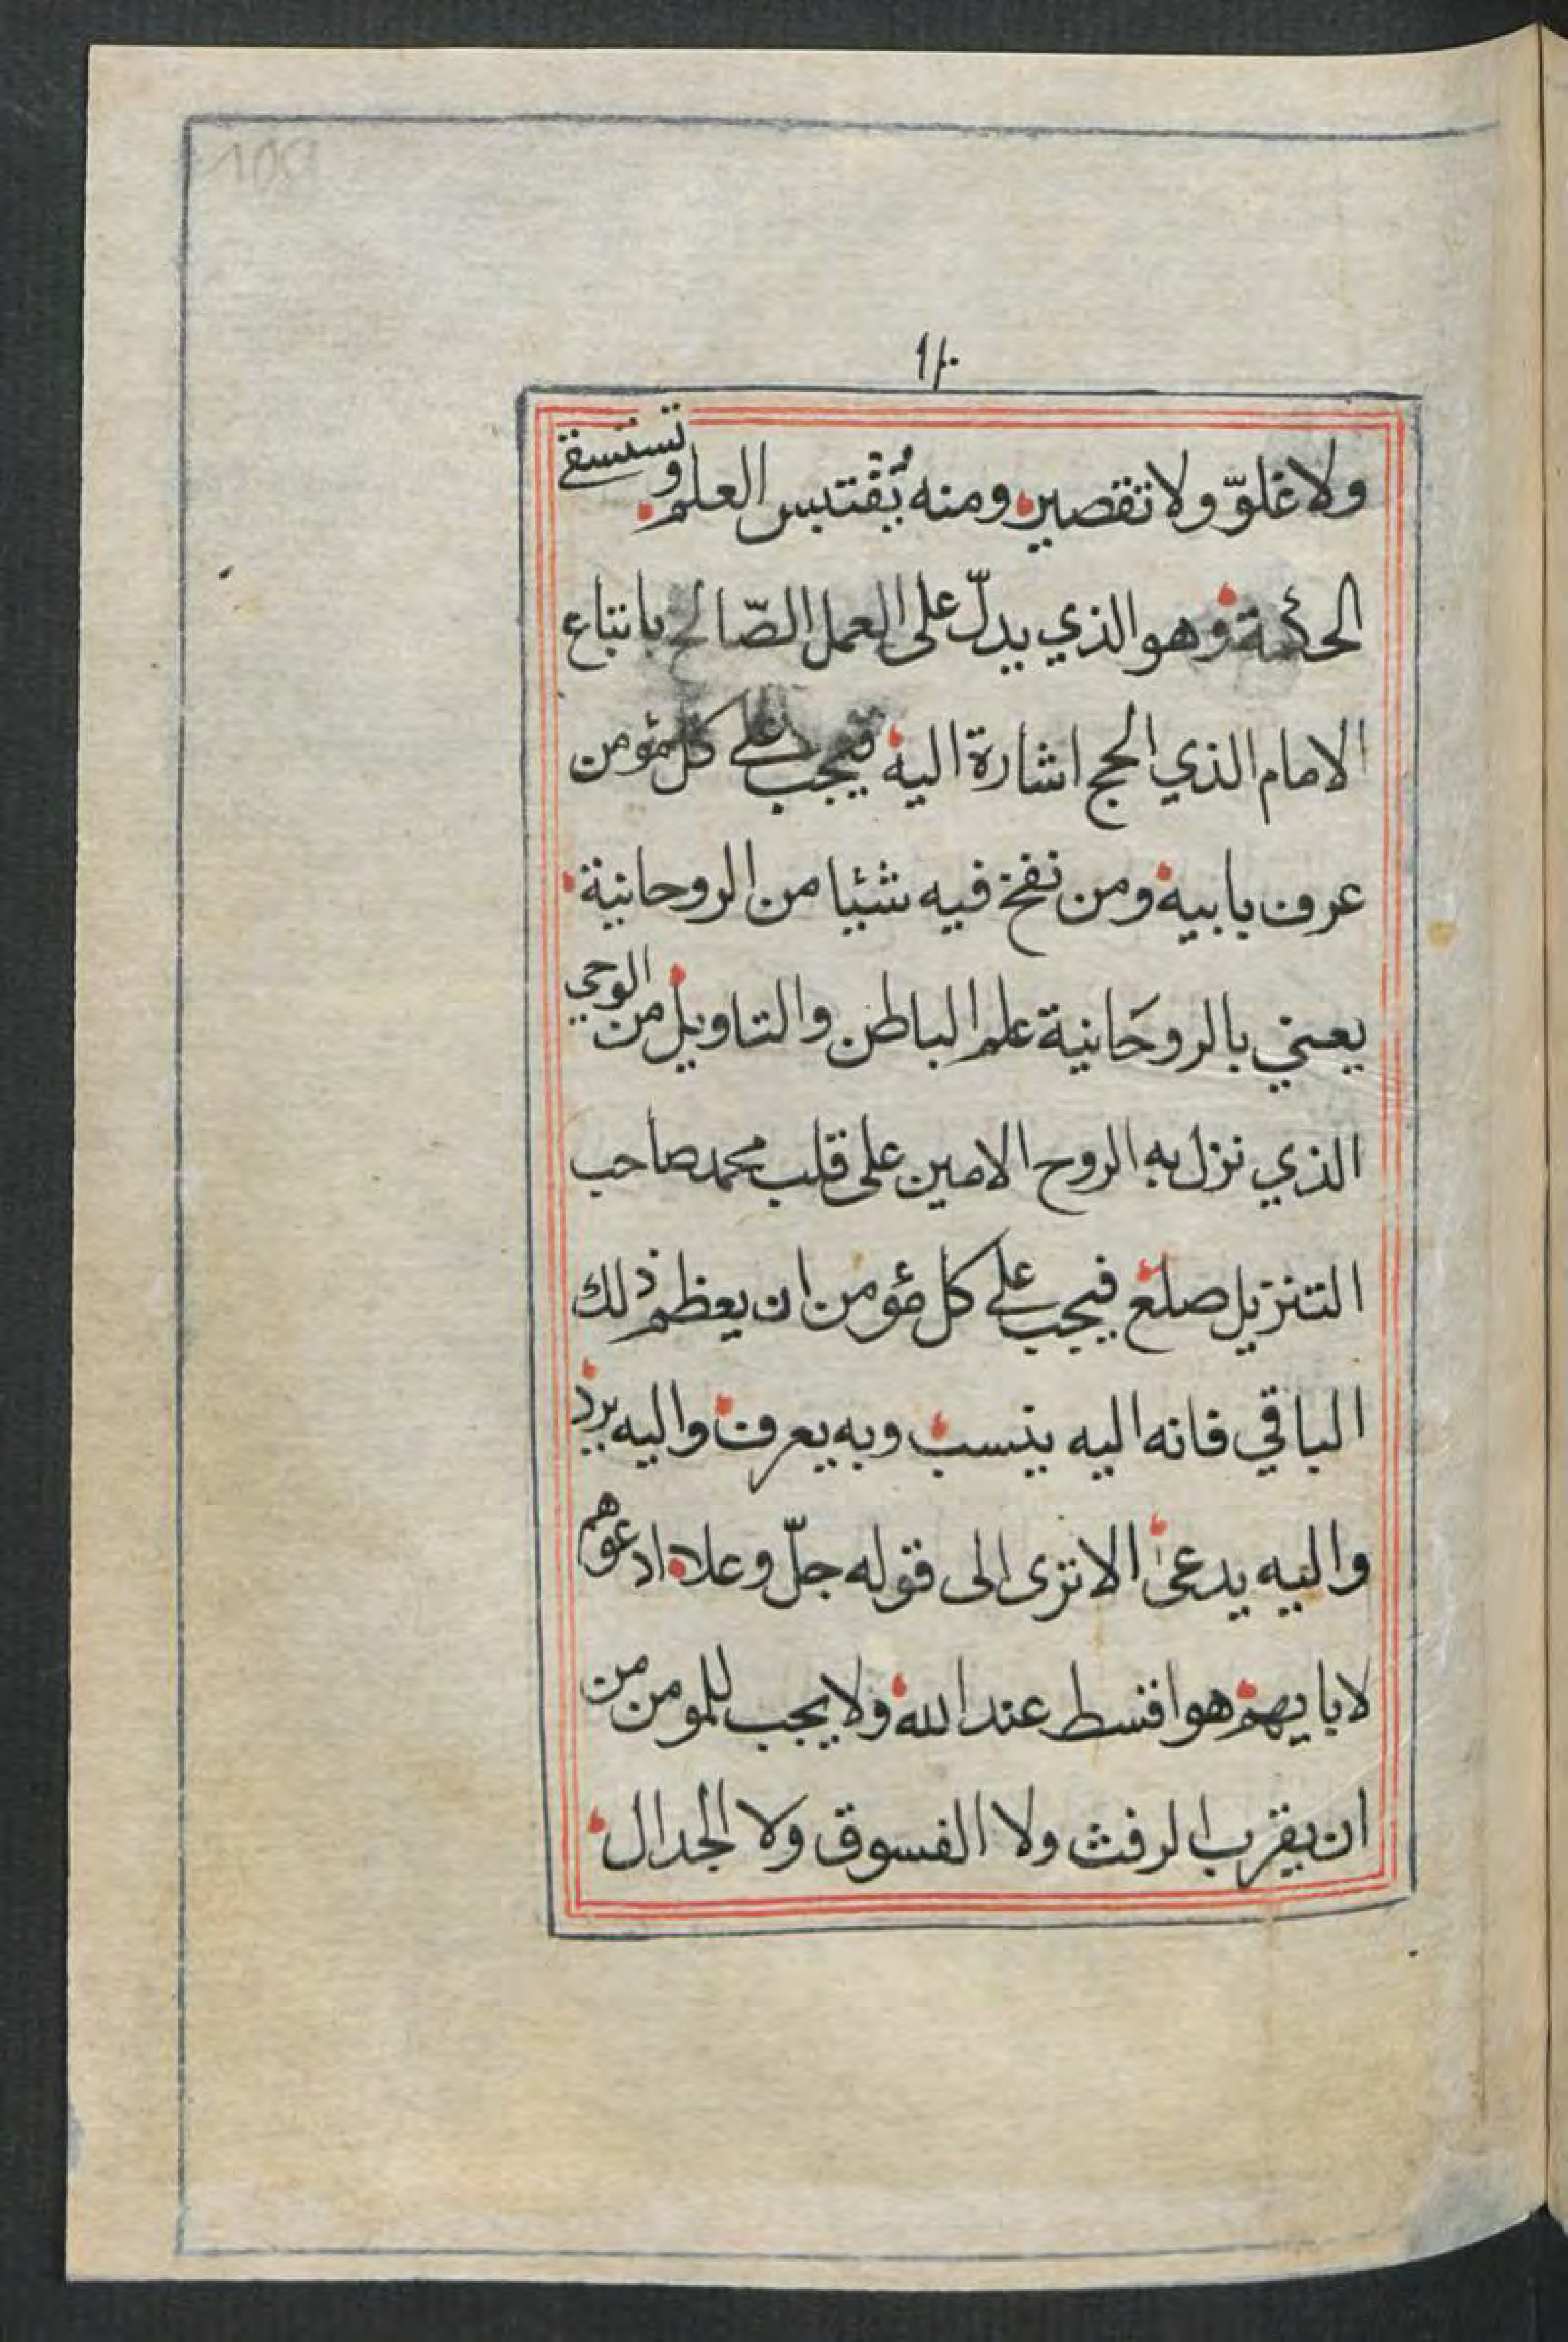 ولا غلوّ ولا تقصير ومنه يُقتبس العلم وتستسقى
الحكمة وهو الذي يدلّ على العمل الصّالح باتباع
الامام الذي الحج اشارة اليه فيجب على كل مؤمن
عرف بابيه ومن نفخ فيه شئيا من الروحانية
يعني بالروحَانية علم الباطن والتاويل من الوحي
الذي نزل به الروح الامين على قلب محمد صاحب
التنزيل صلع فيجب على كل مؤمن ان يعظم ذلك
الباقي فانه اليه ينسب وبه يعرف واليه يرد
واليه يدعى الا ترى الى قوله جلّ وعلا ادعوهم
لابايهم هو اقسط عند الله ولا يجب للمومن من
ان يقرب الرفث ولا الفسوق ولا الجدال